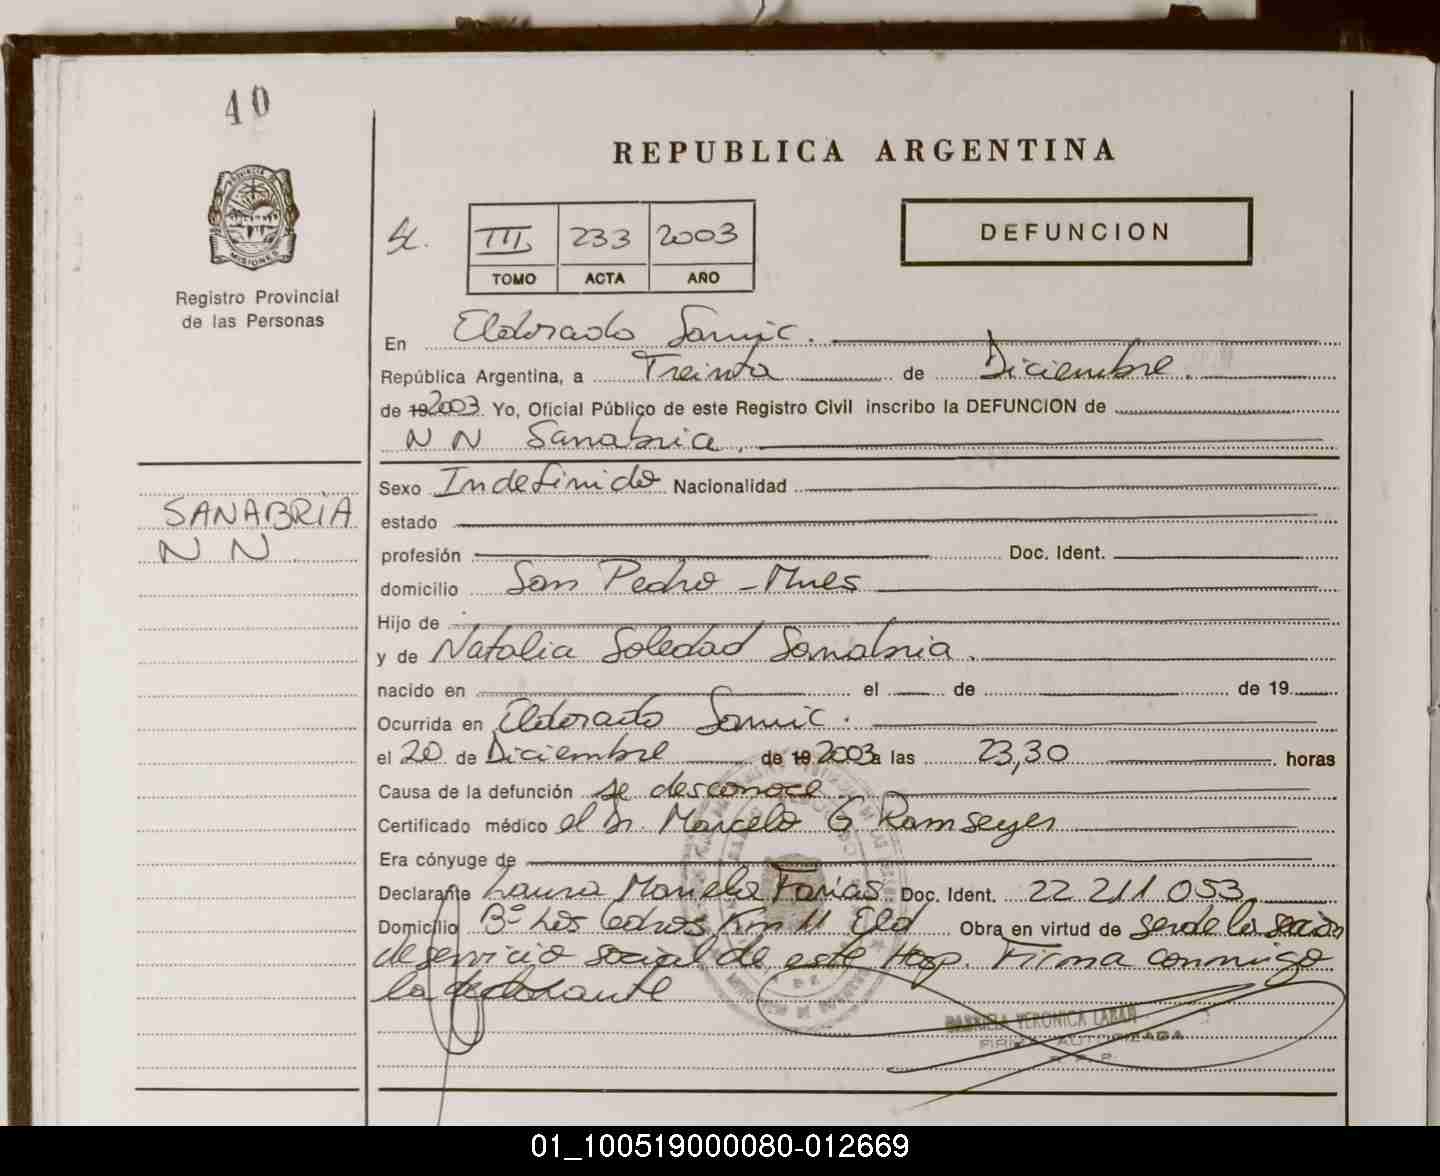 40
REPUBLICA ARGENTINA
DEFUNCION
III 233 2003
TOMO ACTA AÑO
PROVINCIA DE
MISIONES
Registro Provincial
de las Personas
En Eldorado Samic.
República Argentina, a Treinta de Diciembre.
de 19 2003. Yo, Oficial Público de este Registro Civil inscribo la DEFUNCION de
N N Sanabria.
SANABRIA
N N
Sexo Indefinido Nacionalidad
estado
profesión Doc. Ident.
domicilio San Pedro - Mnes
Hijo de
y de Natalia Soledad Sanabria.
nacido en el de de 19
Ocurrida en Eldorado Samic.
el 20 de Diciembre de 19 2003 a las 23,30 horas
Causa de la defunción se desconoce
Certificado médico el Dr. Marcelo G Ramseyer
Era cónyuge de
Declarante Laura Mariela Farias Doc. Ident. 22 211 053
Domicilio Bº Los Cedros Km 11 Eld Obra en virtud de ser de la sección
de servicio social de este Hosp. Firma conmigo
la declarante
GABRIELA VERONICA LABAN
FIRMA AUTORIZADA
R. P. P.
01_100519000080-012669